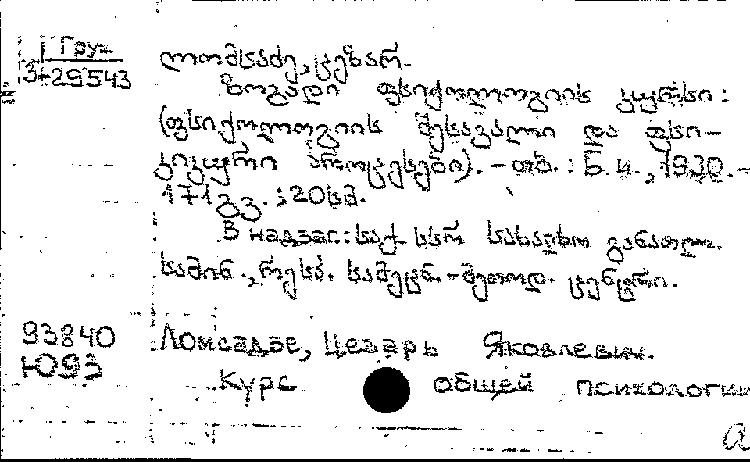 Груз
3-29543
ლომსაძე, ცეზარ.
ზოგადი ფსიქოლოგიის კურსი:
(ფსიქოლოგიის შესავალი და ფსი-
კიკური პროცესები). - თბ. : Б.и.,
171 გვ. ; 20სმ.
В надзаг.: საქ. სსრ სახალხო განათლ.
სამინ., რესპ. სამეცნ.-მეთოდ. ცენტრი.
93840
Ю93
Ломсадзе, Цезарь Яковлевич.
Курс общей психологии